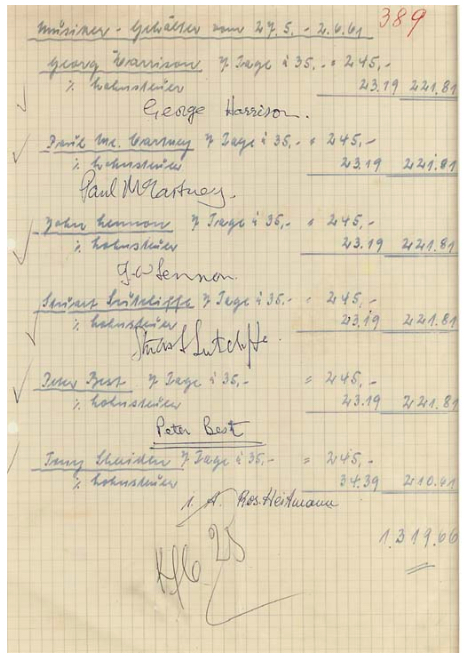 389
Musiker - Gehälter vom 27.5. - 2.6.61
Georg Harrison 7 Tage à 35,- = 245,-
% Lohnsteuer 23.19 221.81
George Harrison.
Paul Mc. Cartney 7 Tage à 35,- = 245,-
% Lohnsteuer 23.19 221.81
Paul McCartney.
John Lennon 7 Tage à 35,- = 245,-
% Lohnsteuer 23.19 221.81
J.W Lennon.
Stuart Sutcliffe 7 Tage à 35,- = 245,-
% Lohnsteuer 23.19 221.81
Stuart Sutcliffe.
Peter Best 7 Tage à 35,- = 245,-
% Lohnsteuer 23.19 221.81
Peter Best
Tony 7 Tage à 35,- = 245,-
% Lohnsteuer 34.39 210.61
i. A. Ros. Heitmann
1.319.66